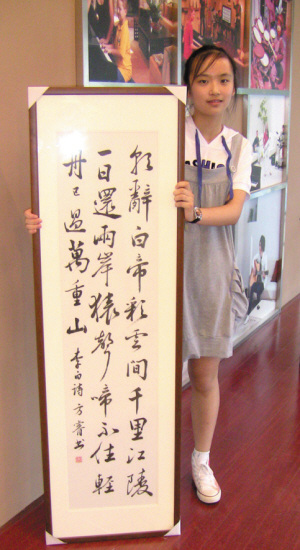 朝辭白帝彩雲間千里江陵
一日還兩岸猿聲啼不住輕
舟已過萬重山
李白詩方書